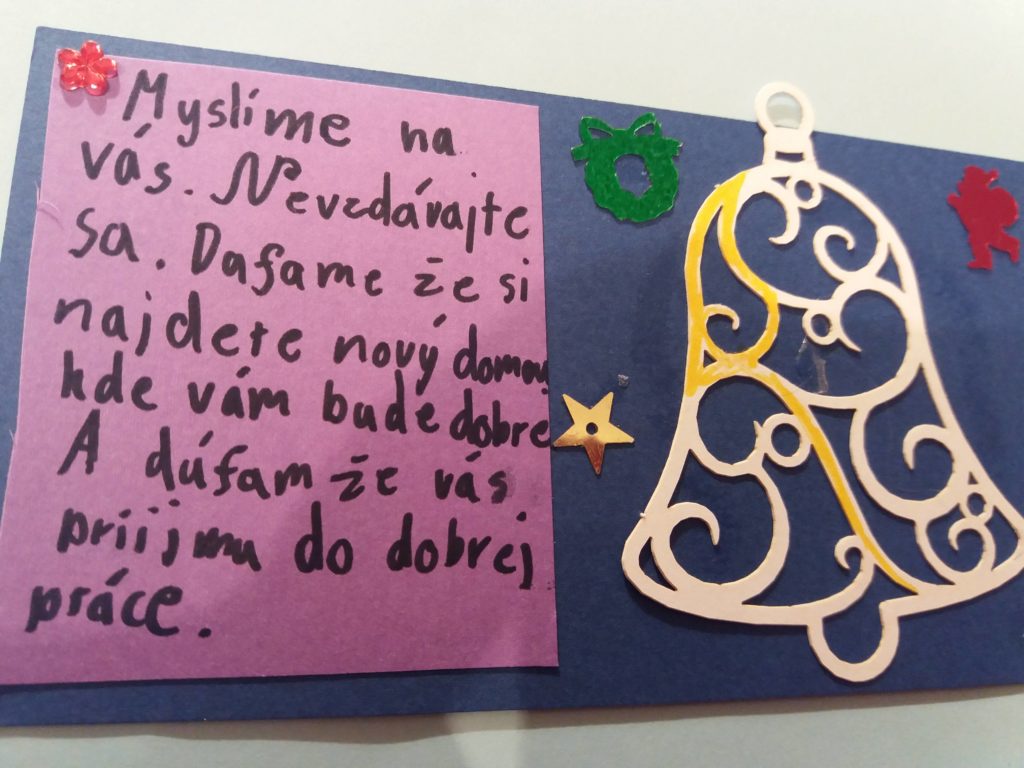 Myslíme na
vás. Nevzdávajte
sa. Dafame že si
najdete nový domov
kde vám bude dobre
A dúfam že vás
priijmu do dobrej
práce.